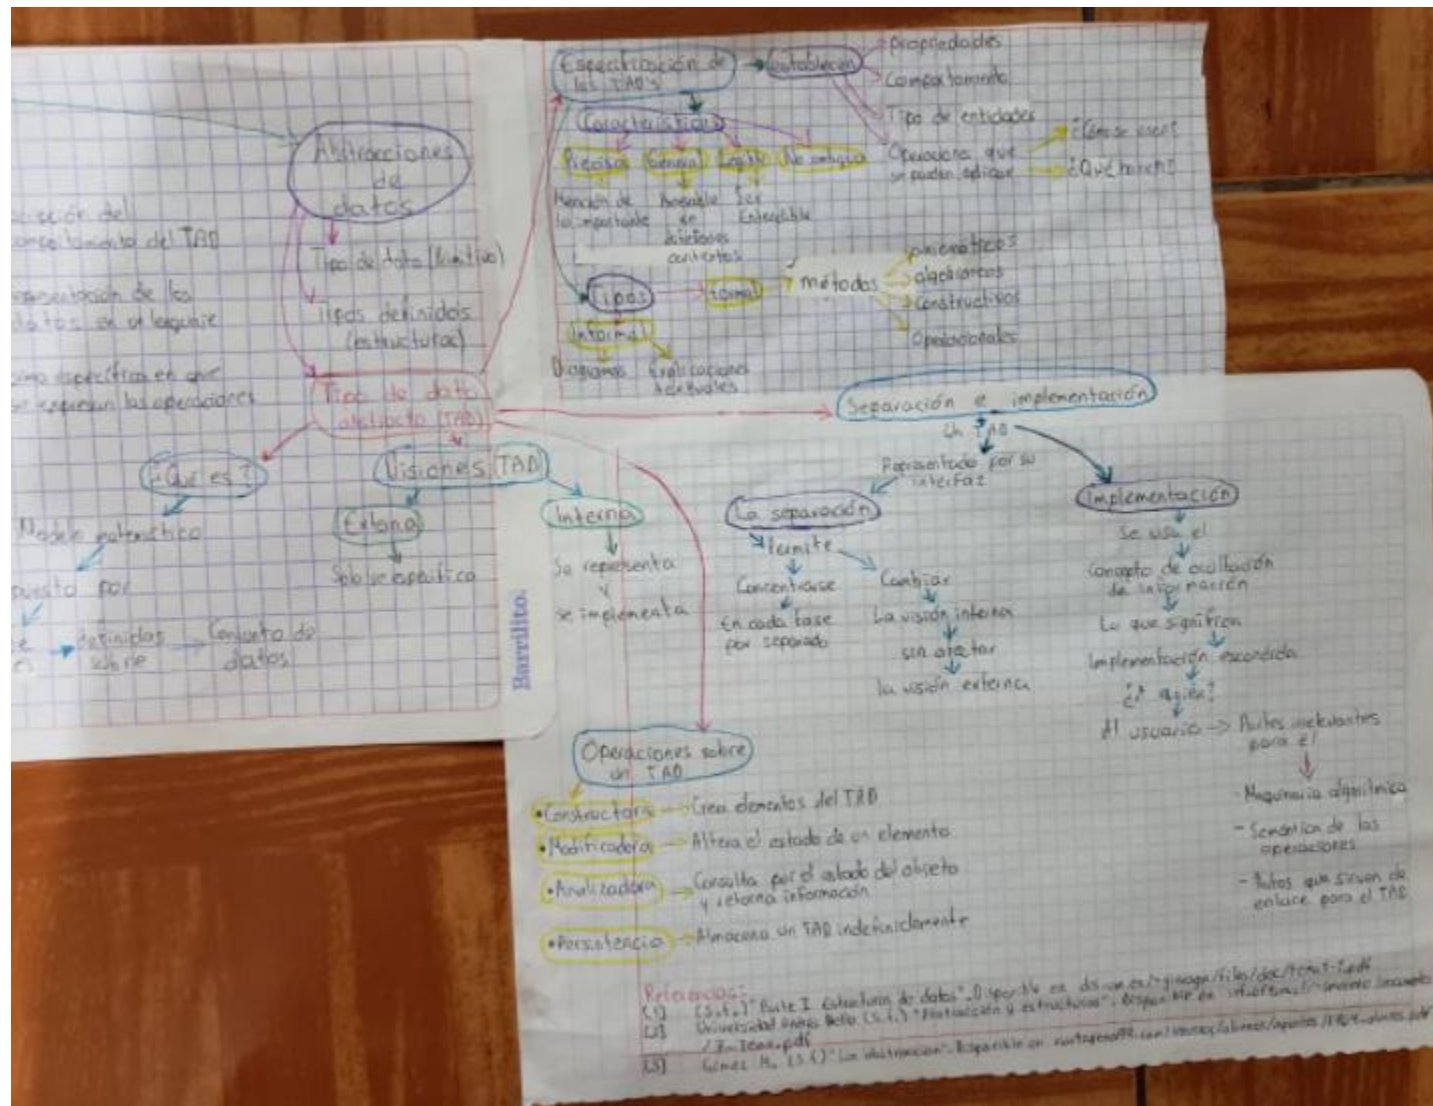 Abstracciones
de
datos
Tipo de dato (Primitivo)
Tipos definidos
(estructuras)
Tipo de dato
abstracto (TAD)
del TAD
de los
datos en el lenguaje
en que
se expresan las operaciones
¿Qué es?
Modelo matemático
por
definidas
sobre
Conjunto de
datos
Visiones TAD
Externa
Interna
Se representa
y
se implementa
Barrilito.
Especificación de
los TAD's
establecen
Propiedades
Comportamiento
Tipo de entidades
Operaciones que
se puedan
¿Cómo se usen?
¿Qué hacen?
Características
Precisa
General
Legible
No ambigua
Mención de
lo importante
en
contextos
Ser
Entendible
Tipos
formal
métodos
axiomáticos
algebraicos
constructivos
Operacionales
Informal
Diagramas
Explicaciones
textuales
Separación e implementación
Un TAD
Representado por su
interfaz
La separación
Permite
Concentrarse
En cada fase
por separado
Cambiar
La visión interna
sin afectar
la visión externa
Implementación
Se usa el
Concepto de ocultación
de información
Lo que significa
Implementación escondida
¿A quién?
Al usuario
Partes irrelevantes
para él
- Maquinaria algorítmica
- Semántica de las
operaciones
que sirven de
enlace para el TAD
Operaciones sobre
un TAD
•Constructora
Crea elementos del TAD
•Modificadora
Altera el estado de un elemento
•Analizadora
Consulta por el estado del objeto
y retorna información
•Persistencia
Almacena un TAD indefinidamente
Referencias:
[1] (S.f.) "Parte I. Estructuras de datos". Disponible en
[2] Universidad Andrés Bello (S.f.) "Abstracción y estructuras". Disponible en
[3] Gómez M. (S.f.) "La abstracción". Disponible en